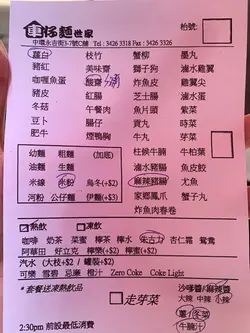 車仔麵世家
枱號:
中環永吉街3-7號C舖
Tel : 3426 3318 Fax : 3426 3326
蘿白 枝竹 蟹柳 墨丸
豬紅 美味齋 獅子狗 滷水雞翼
咖喱魚蛋 酸齋 炸魚皮 雞翼尖
豬皮 紅腸 芝士腸 滷水蛋
冬菇 午餐肉 魚片頭 紫菜
豆卜 腸仔 貢丸 時菜
肥牛 煙鴨胸 牛丸 芽菜
幼麵 粗麵 (加底) 柱候牛腩 牛柏葉
油麵 生麵 滷水豬腸
米線 米粉 烏冬(+$2) 麻辣豬腸 尤魚
河粉 公仔麵 伊麵(+$3) 家鄉鳳爪 蟹子包
炸魚肉春卷
熱飲 凍飲
咖啡 奶茶 菜蜜 檸茶 檸水 朱古力 杏仁霜 鴛鴦
阿華田 好立克 檸蜜(+$2) 檸樂(+$2)
汽水 (大枝+$2 / 罐裝+$2)
可樂 雪碧 忌廉 橙汁 Zero Coke Coke Light
*套餐送凍熱飲品
走芽菜
沙嗲醬/麻辣醬
大辣 中辣 小辣
薑/冬菜
牛腩汁
2:30pm 前設最低消費